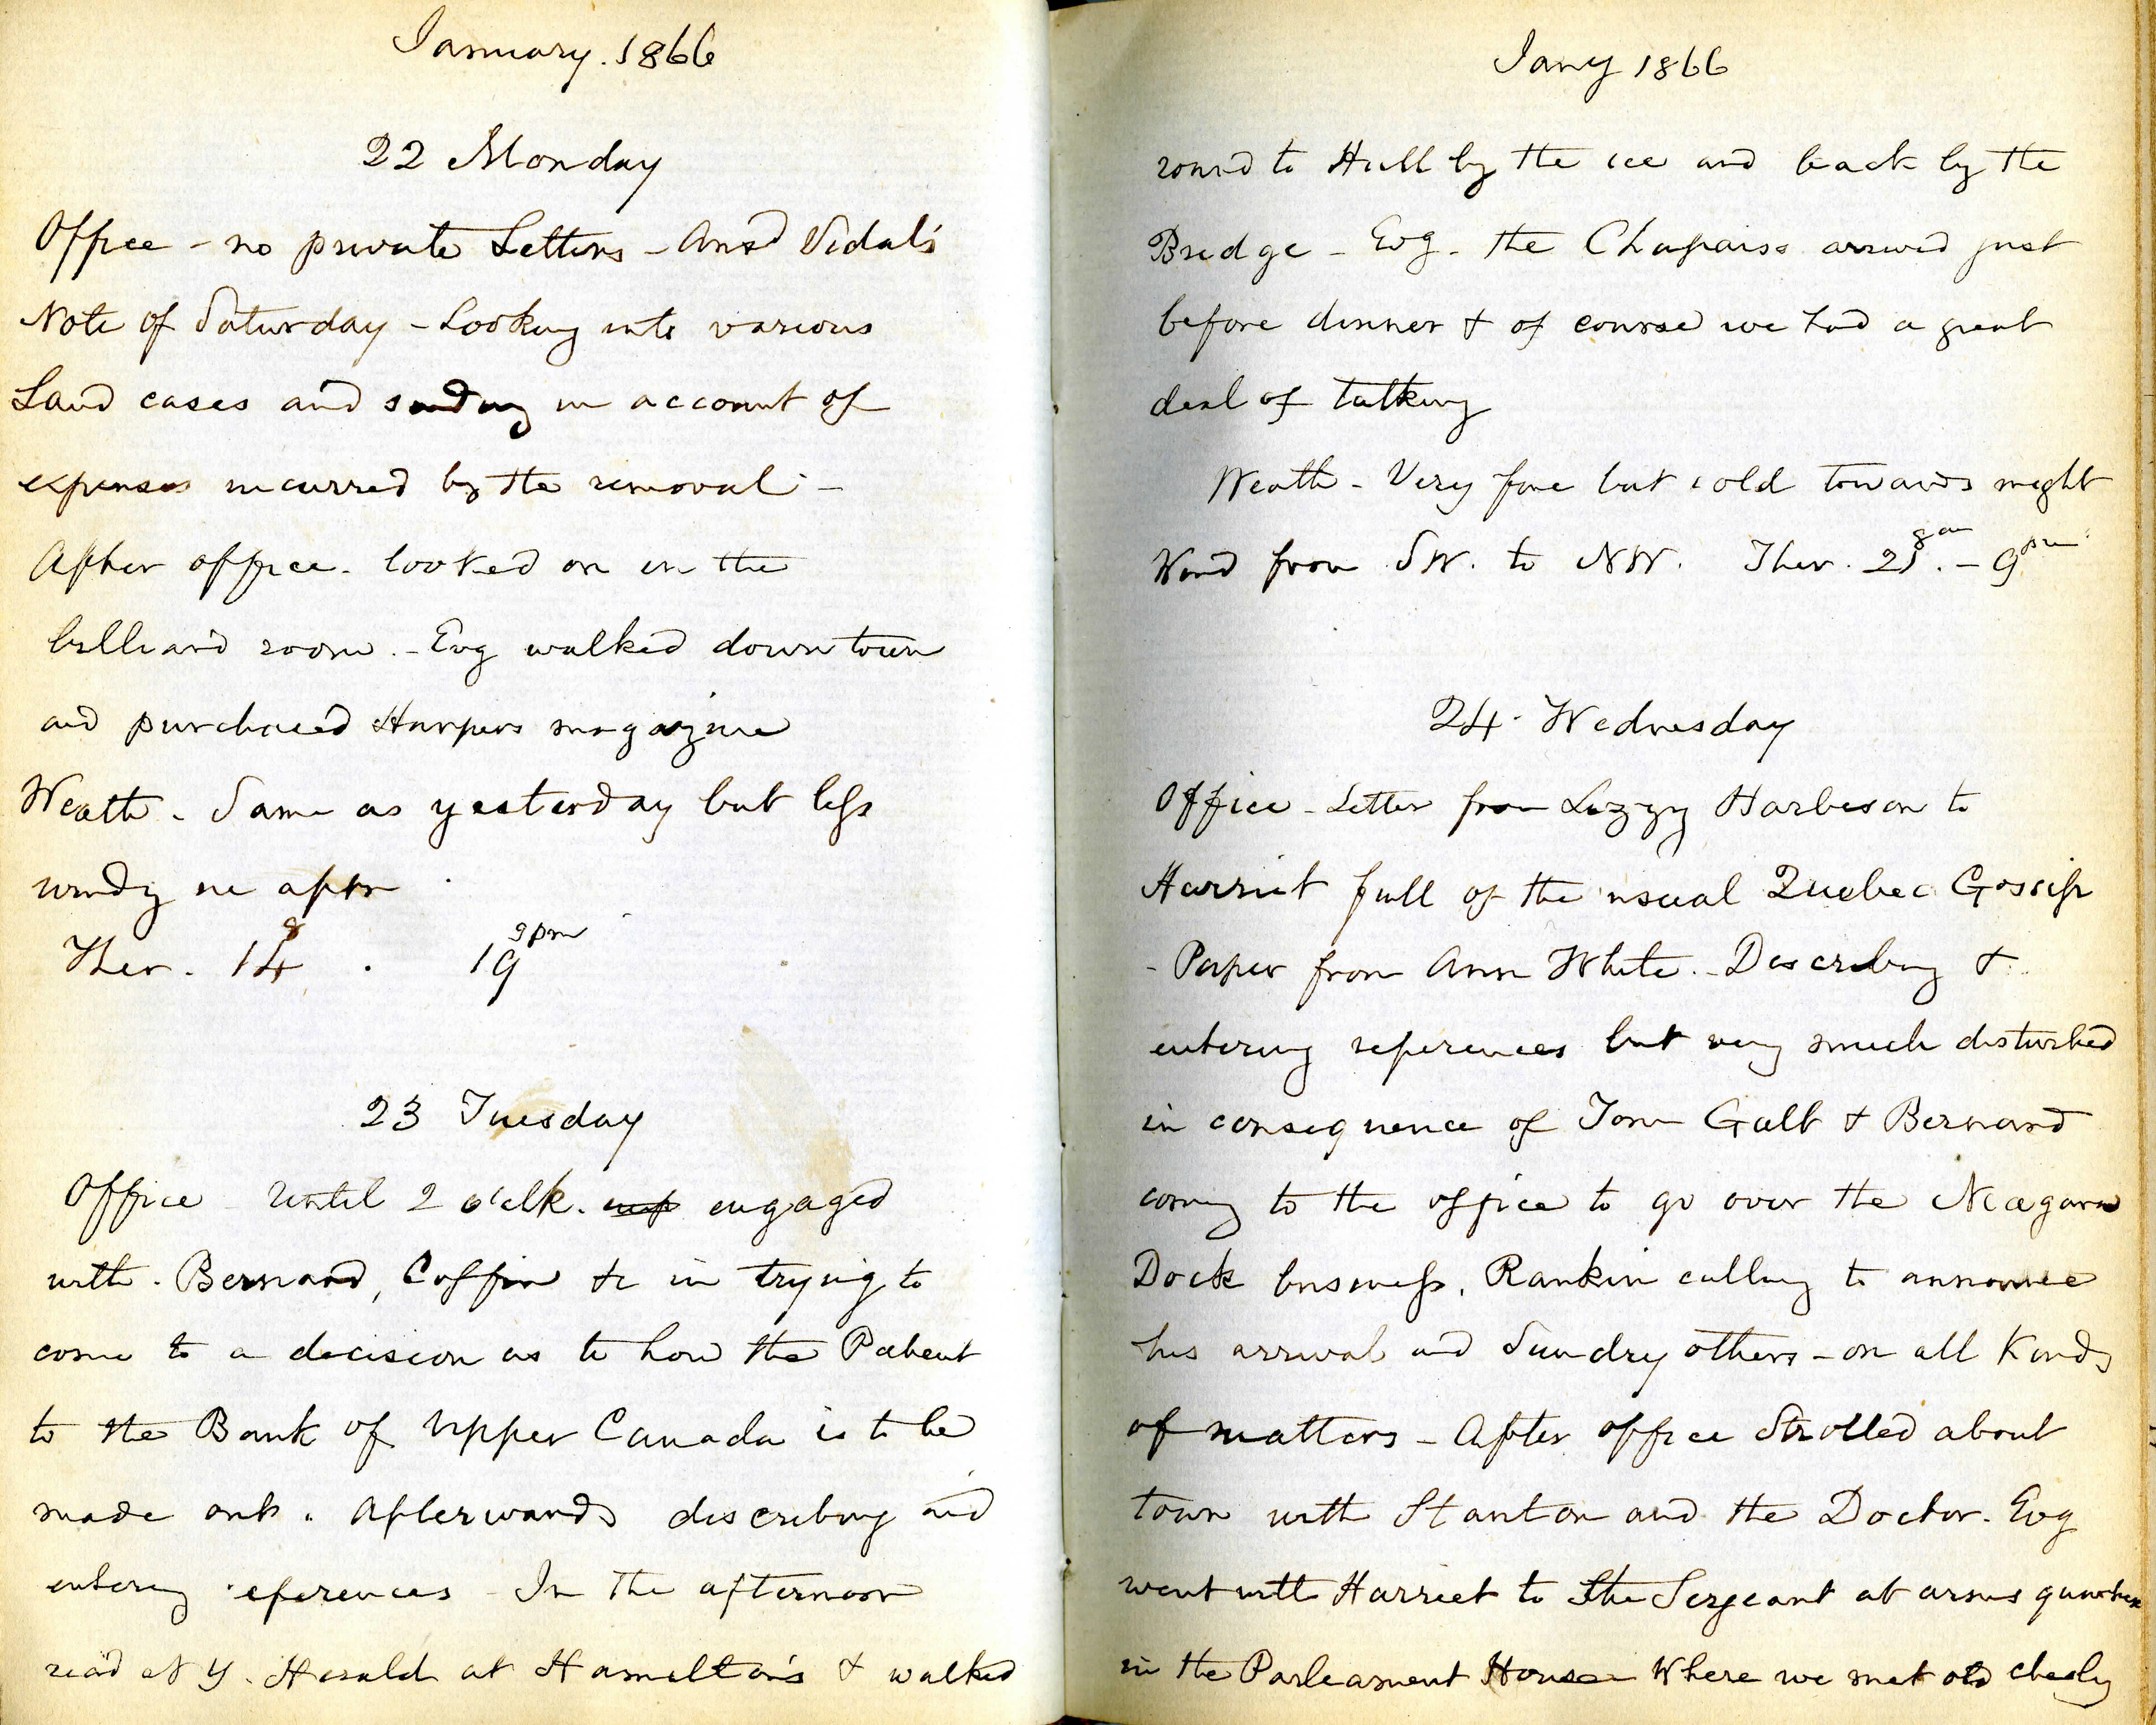 January. 1866
22 Monday
Office - no private Letters - Ansd Vidal's
Note of Saturday - Looking into various
Land cases and sending in account of
expenses incurred by the removal -
After office. looked on in the
billiard room. - Evg walked down town
and purchased Harpers magazine
Weath. Same as yesterday but less
windy in aftn
Ther. 14 8 . 19 9pm
23 Tuesday
Office until 2 o'clk. engaged
with. Bernard, Coffin &c in trying to
come to a decision as to how the Patent
to the Bank of Upper Canada is to be
made out. Afterwards describing and
entering references - In the afternoon
read N Y. Herald at Hamilton's & walked
Jany 1866
round to Hull by the ice and back by the
Bridge - Evg - the Chapaiss arrived just
before dinner & of course we had a great
deal of talking
Weath - Very fine but cold towards night
Wind from SW. to NW. Ther. 25. 8am - 9 pm
24. Wednesday
Office - Letter from Lizzy Harbeson to
Harriet full of the usual Quebec Gossip
- Paper from Ann White. - Describing &
entering references but very much disturbed
in consequence of Tom Galt & Bernard
coming to the office to go over the Niagara
Dock business. Rankin calling to announce
his arrival and Sundry others - on all Kinds
of matters - After office Strolled about
town with Stanton and the Doctor. Evg
went with Harriet to the Sergeant at arms quarters
in the Parliament House Where we met old